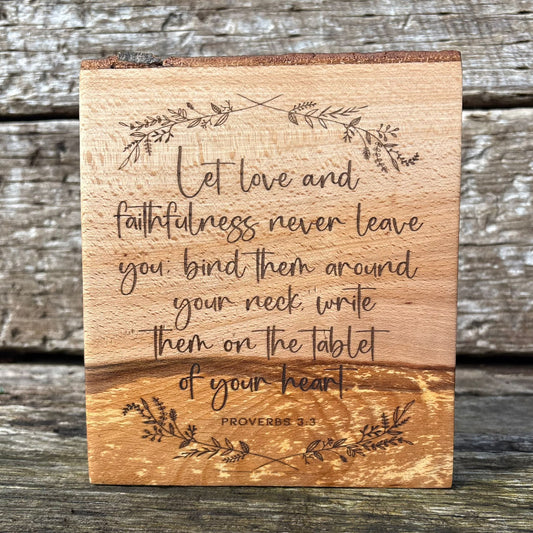 Let love and
faithfulness never leave
you; bind them around
your neck, write
them on the tablet
of your heart.
PROVERBS 3:3